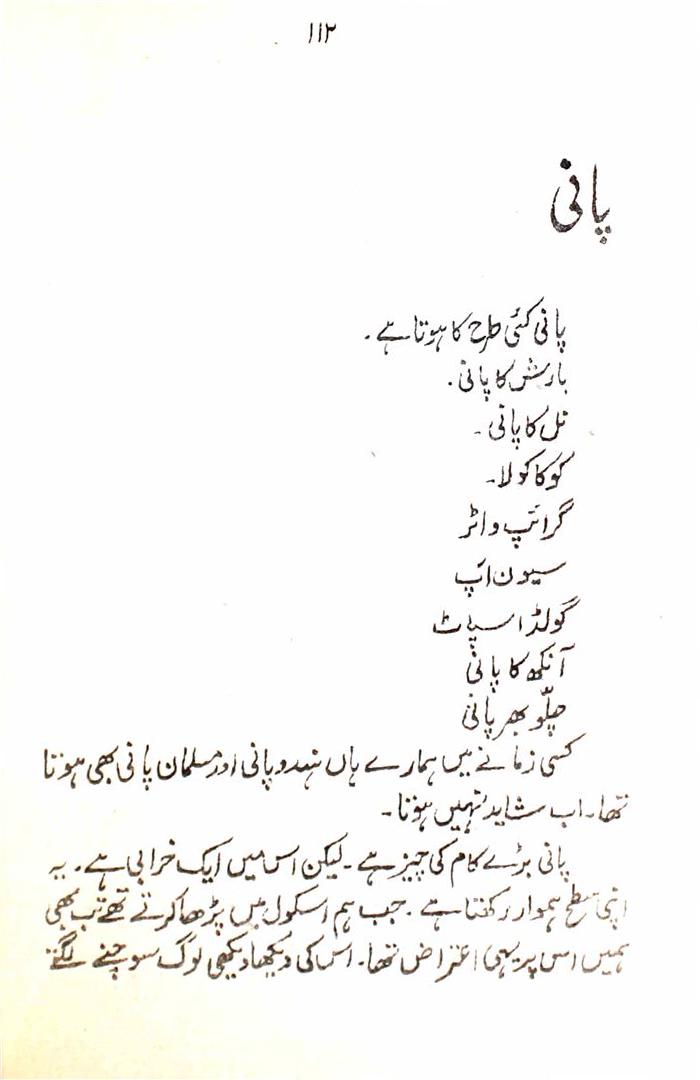 ۱۱۲
پانی
پانی کئی طرح کا ہوتا ہے۔
بارش کا پانی۔
نل کا پانی۔
کوکا کولا۔
گرائپ واٹر
سیون اپ
گولڈ اسپاٹ
آنکھ کا پانی
چلّو بھر پانی
کسی زمانے میں ہمارے ہاں ہندو پانی اور مسلمان پانی بھی ہوتا
تھا۔ اب شاید نہیں ہوتا۔
پانی بڑے کام کی چیز ہے۔ لیکن اس میں ایک خرابی ہے۔ یہ
اپنی سطح ہموار رکھتا ہے۔ جب ہم اسکول میں پڑھا کرتے تھے تب بھی
ہمیں اس پر یہی اعتراض تھا۔ اس کی دیکھا دیکھی لوگ سوچنے لگتے